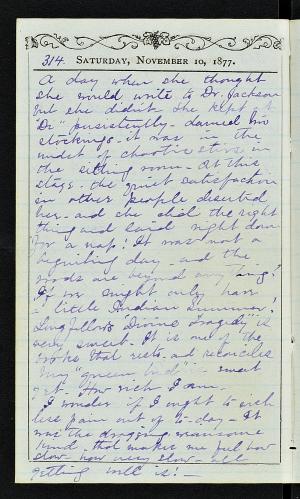 314. SATURDAY, NOVEMBER 10, 1877.
A day when she thought
she would write to Dr. Jackson
but she didn't. She kept at
it persistently - darned two
stockings - it was in the
midst of chaotic stirs in
the sitting room - At this
stage - the quiet satisfaction
in other people deserted
her - and she did the right
thing and laid right down
for a nap! It was not a
beguiling day - and the
roads are beyond any thing!
If we might only have
a little Indian summer!
Longfellow's Divine Tragedy is
very sweet - It is one of the
books that rests and reconciles
My "queen bed" is sweet
yet. How rich I am.
I wonder if I ought to wish
less pain out of to-day - It
was the dragging wearisome
kind, that makes me feel how
slow - how very slow - all
getting well is! -